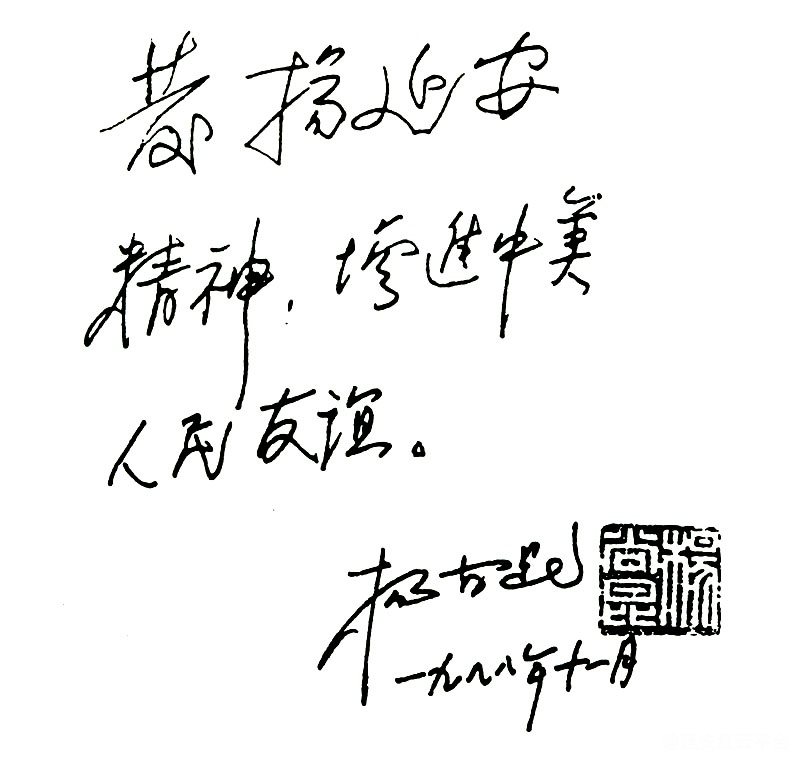 發揚延安
精神,增進中美
人民友谊。
杨尚昆
楊尚昆
一九八八年十一月